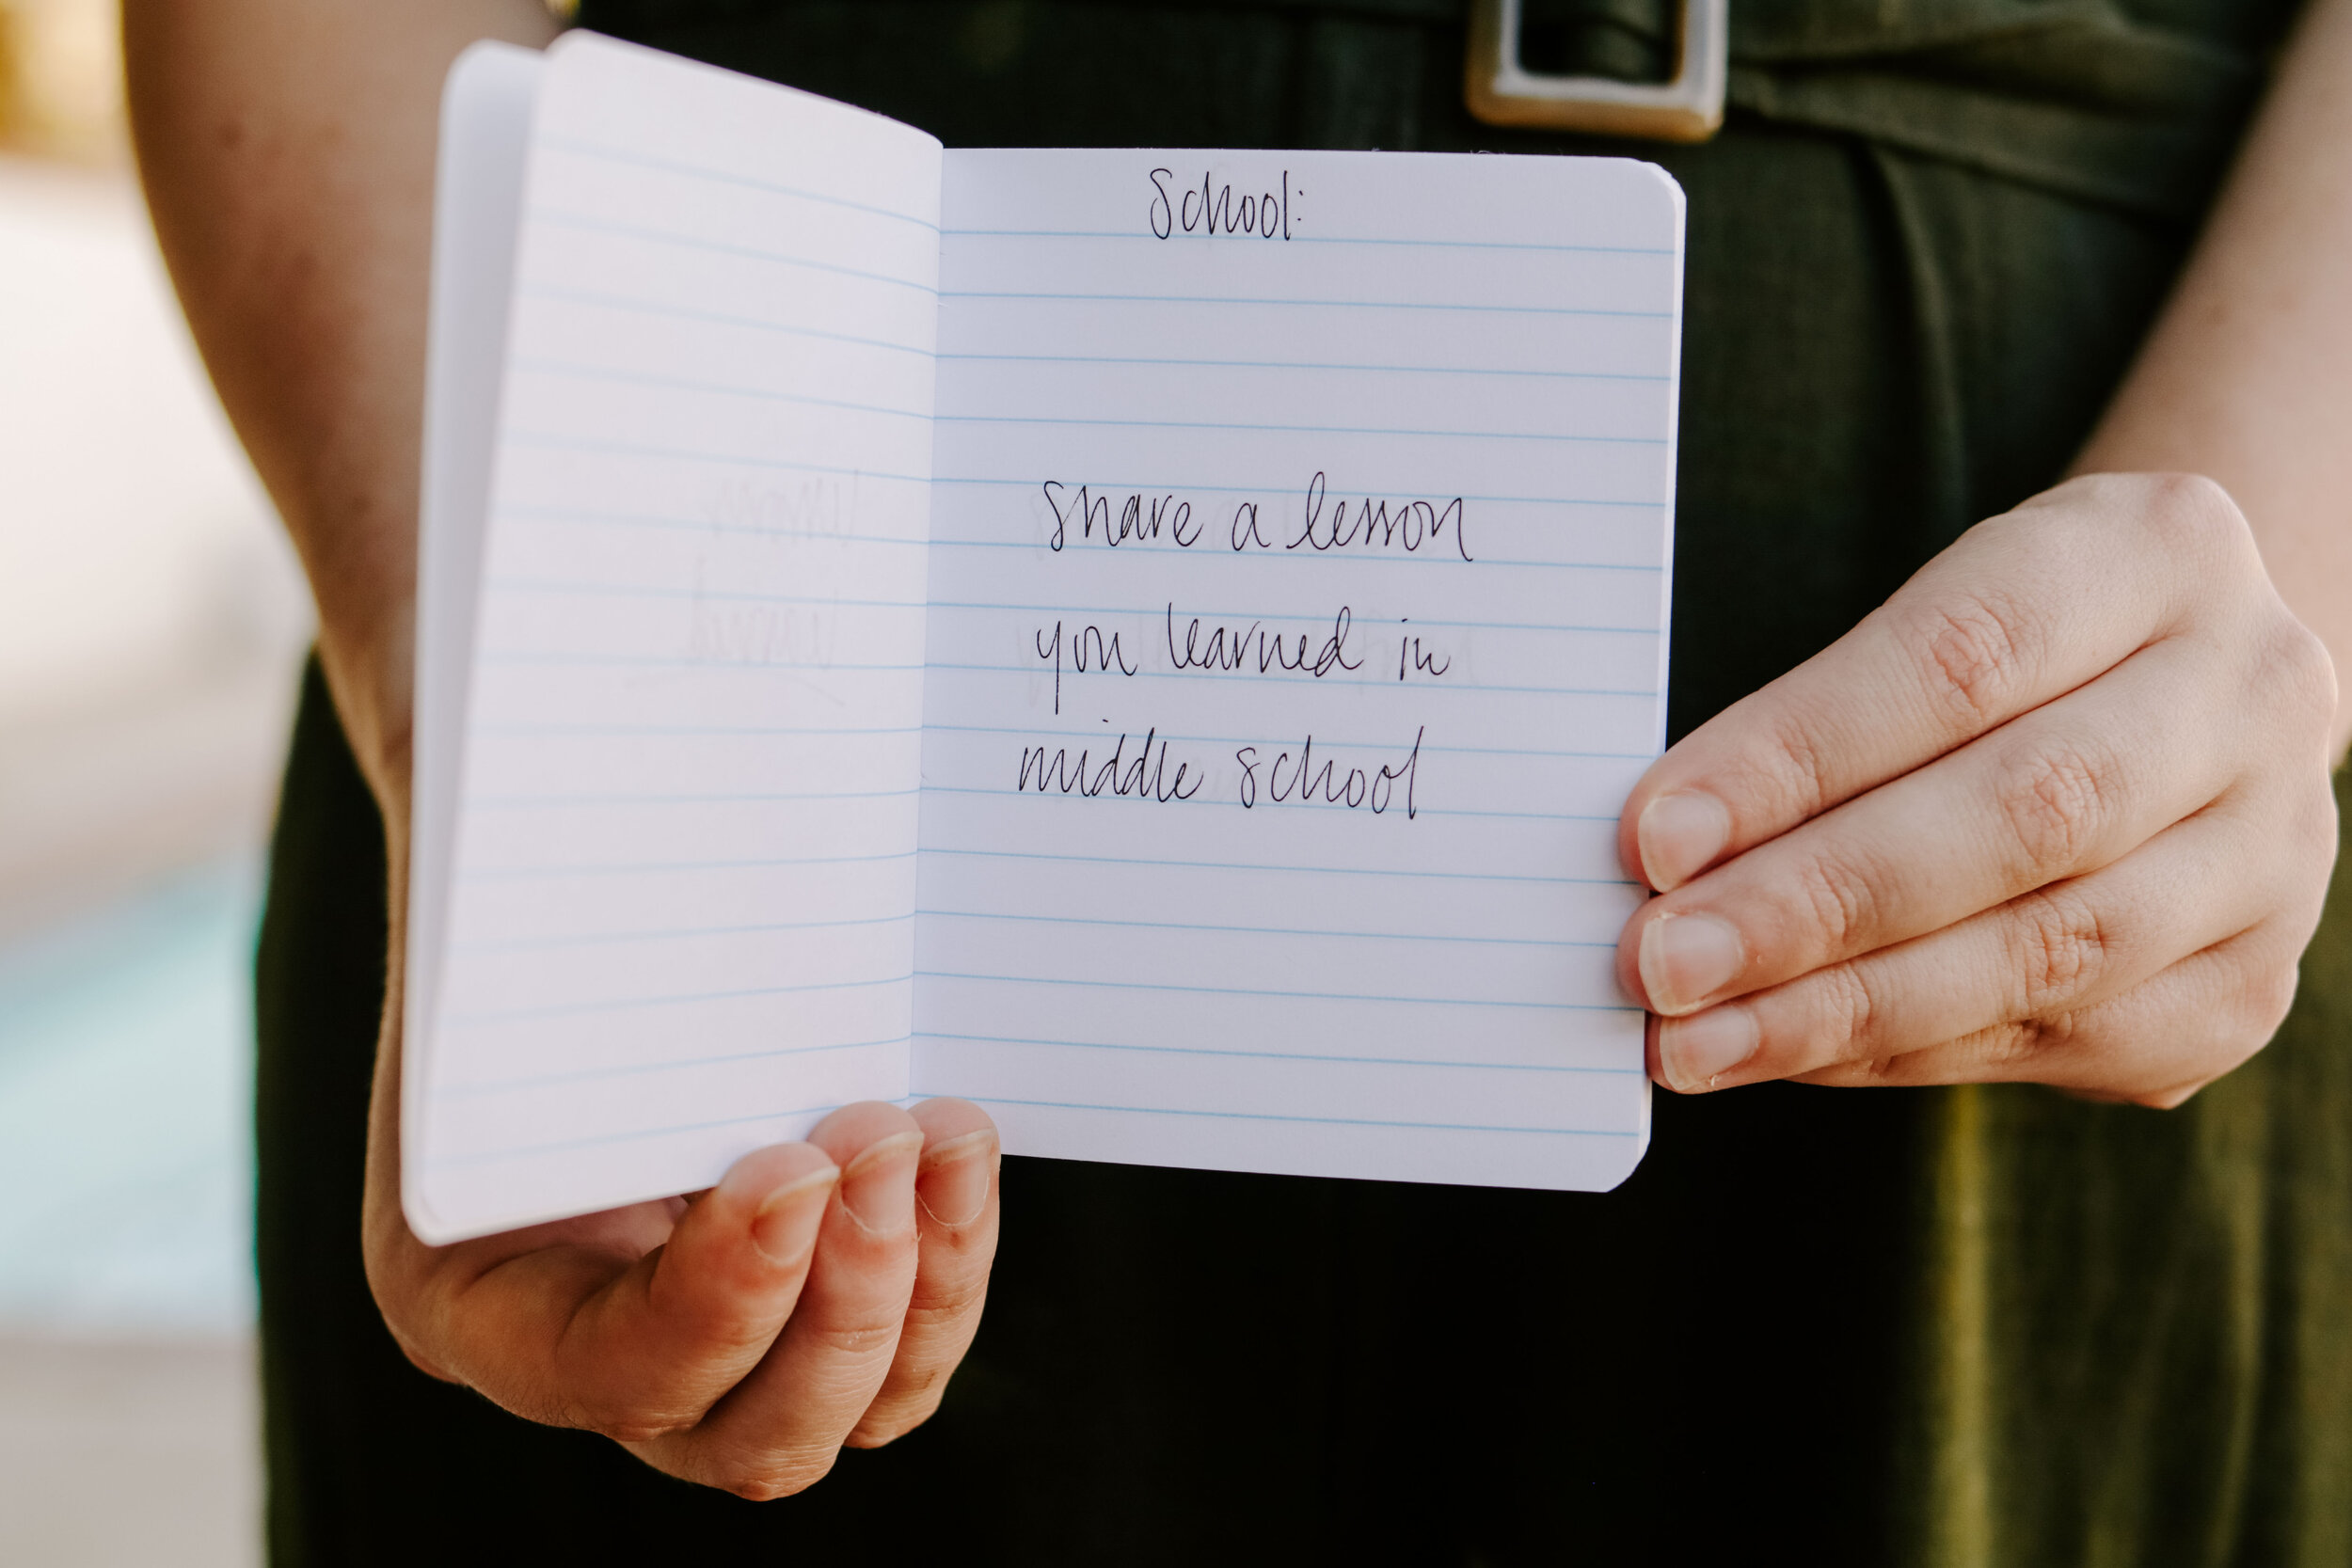 School:
share a lesson
you learned in
middle school